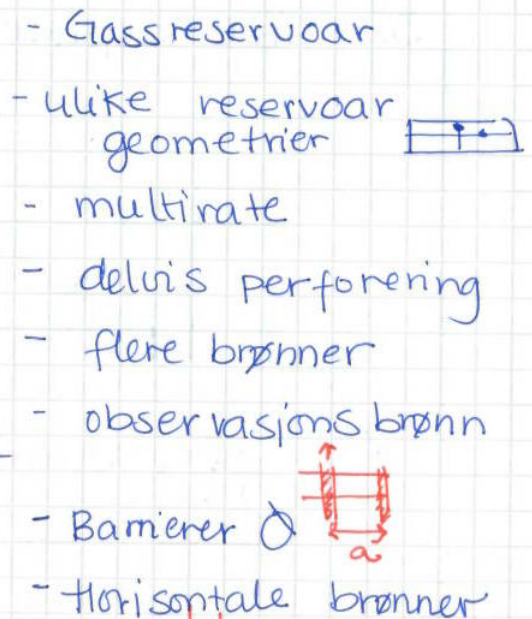 - Gassreservoar
- ulike reservoar
geometrier
- multirate
- delvis perforering
- flere brønner
- observasjonsbrønn
- Barrierer
a
- Horisontale brønner